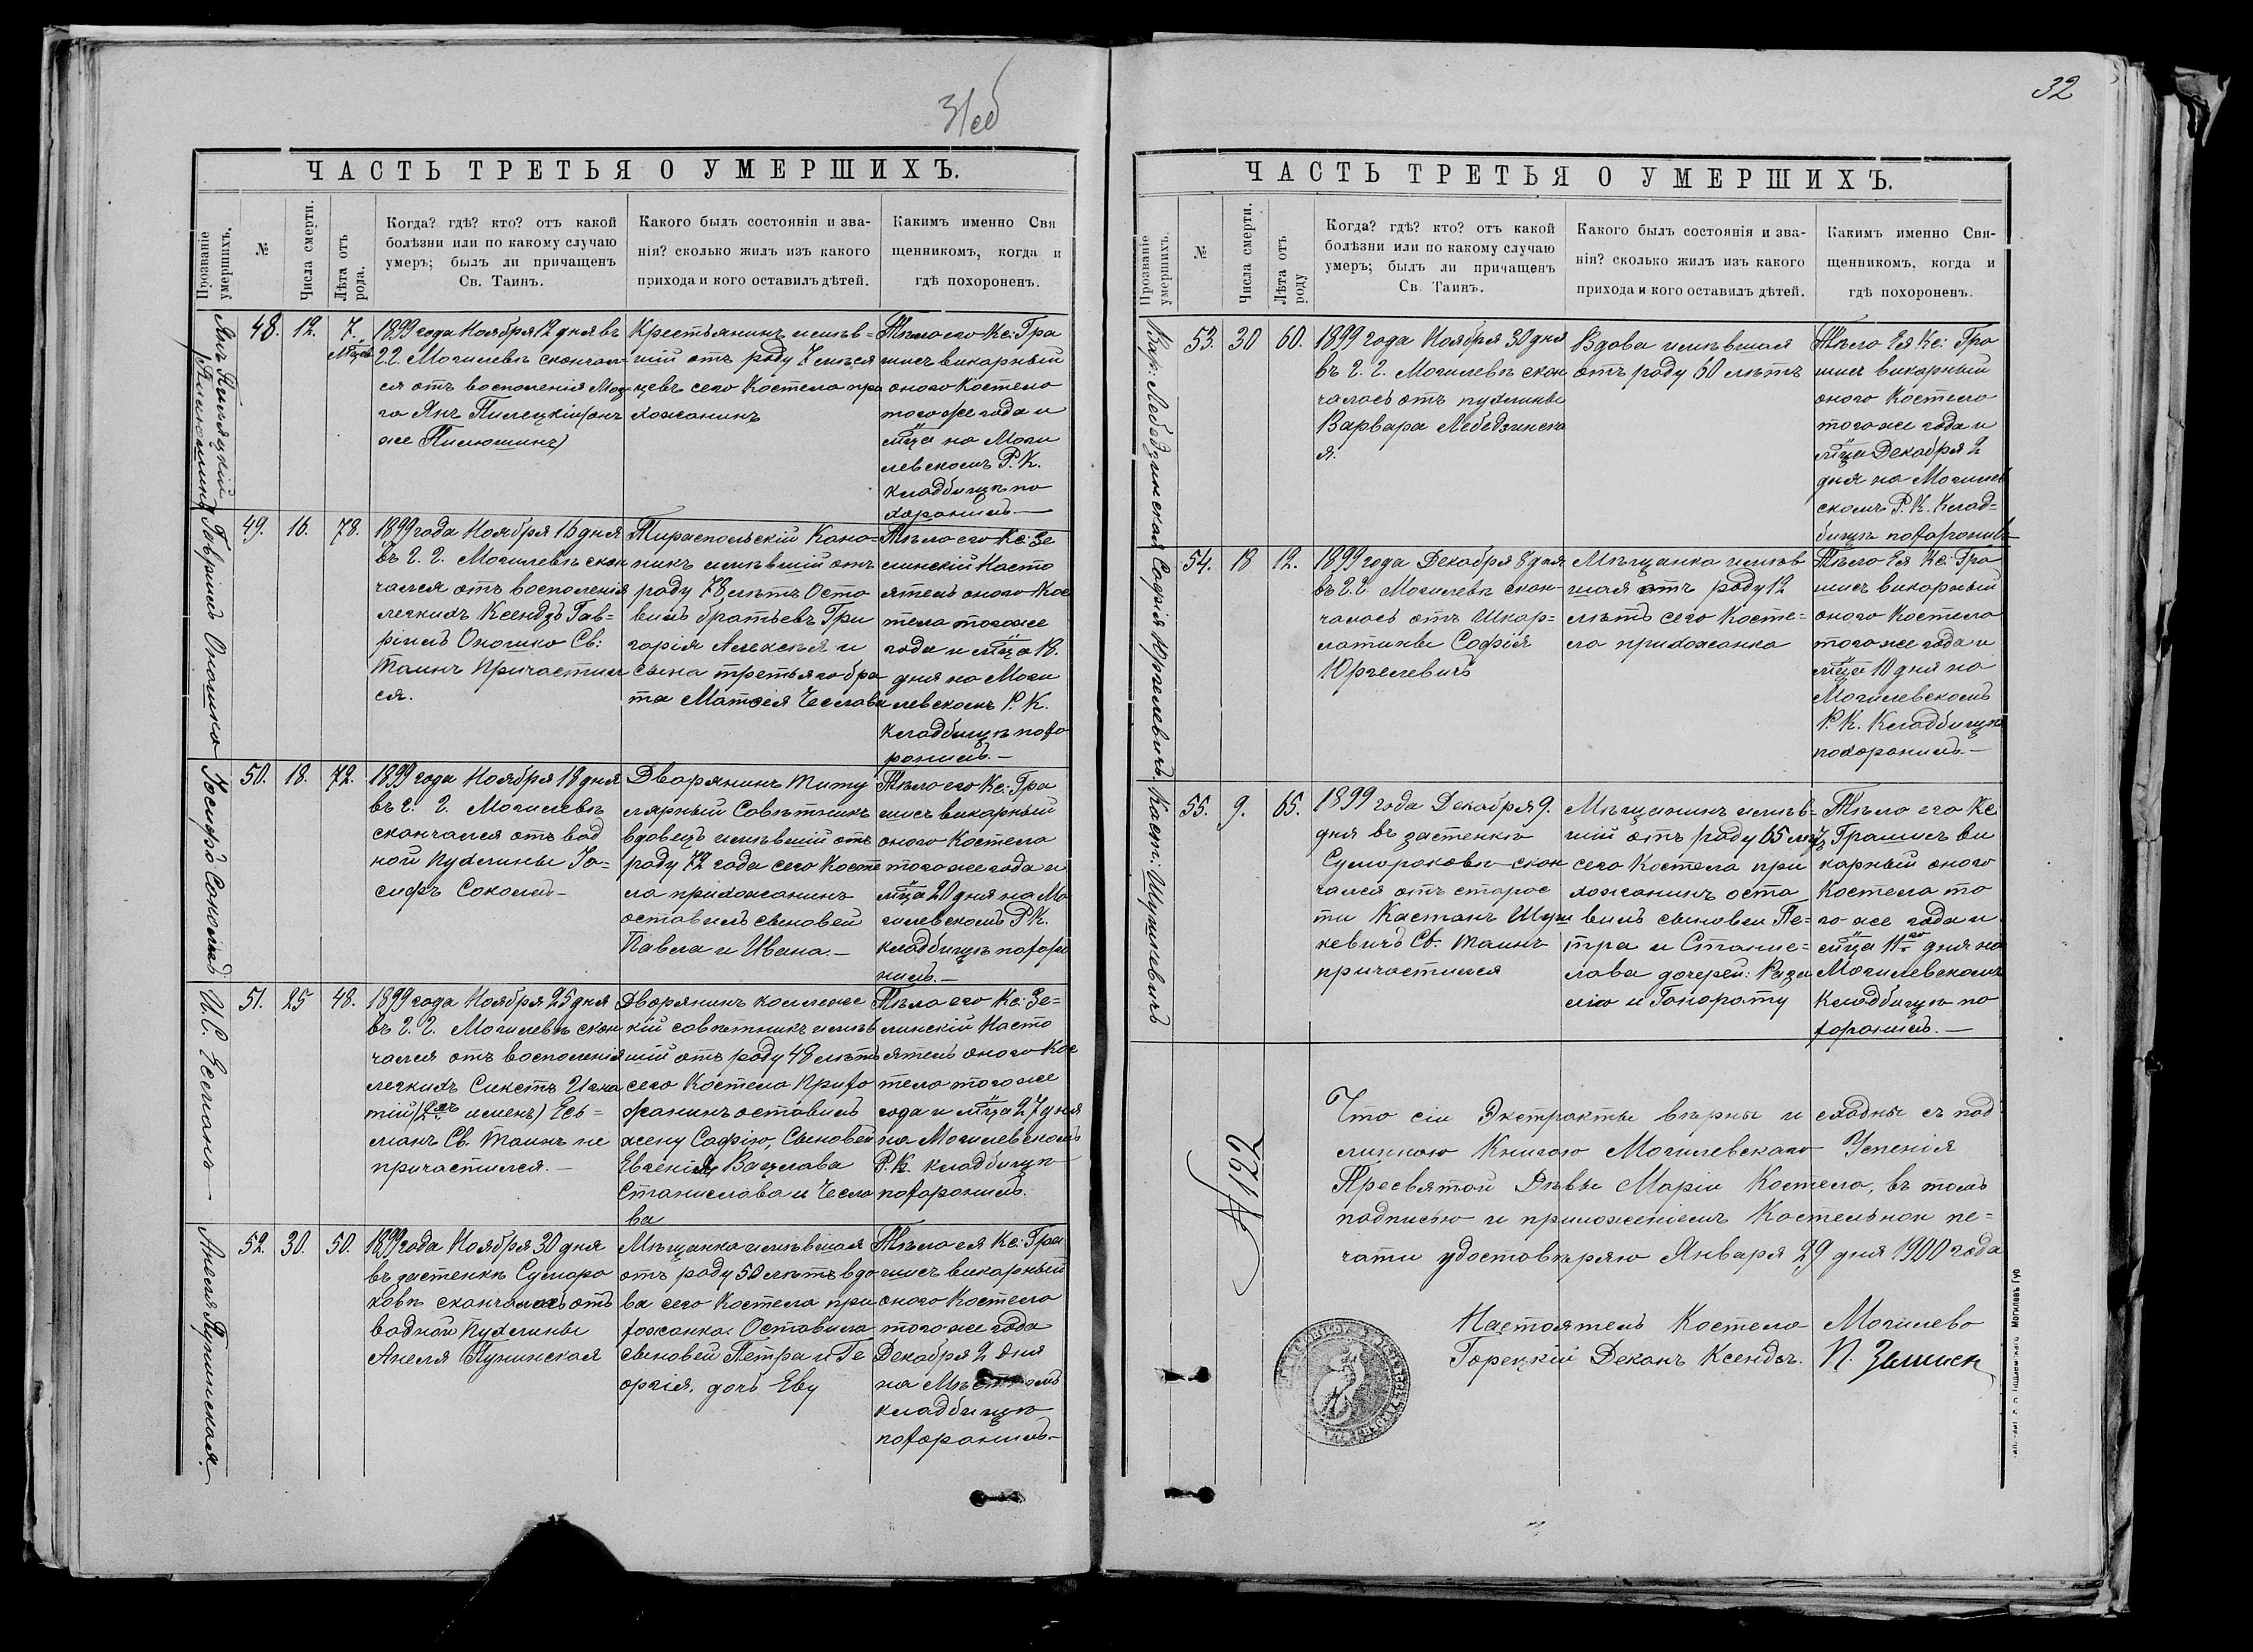 31об
ЧАСТЬ ТРЕТЬЯ О УМЕРШИХЪ.
Прозваніе умершихъ.
№
Числа смерти.
Лѣта отъ рода.
Когда? гдѣ? кто? отъ какой
болѣзни или по какому случаю
умеръ; былъ ли причащенъ
Св. Таинъ.
Какого былъ состоянія и зва-
нія? сколько жилъ изъ какого
прихода и кого оставилъ дѣтей.
Какимъ именно Свя
щенникомъ, когда и
гдѣ похороненъ.
48.
12.
7.
1899 года Ноября 12 дня въ
г. г. Могилевѣ скончал-
ся отъ воспаленія Моз-
га Янъ Пилецкій (онъ
же Пилюшинъ)
Крестьянинъ имѣв=
шій отъ роду 7 мѣся
цевъ сего Костела при
хожанинъ
Тѣло его Кс: Гра
мисъ викарный
оного Костела
того же года и
мѣца на Моги
левскомъ Р. К.
кладбищѣ по
хоронилъ.—
Гавріилъ Оношко
49.
16.
78.
1899 года Ноября 16 дня
въ г. г. Могилевѣ скон
чался отъ воспаленія
легкихъ Ксендзъ Гав=
ріилъ Оношко Св:
Таинъ Причастил
ся.
Тираспольскій Кано=
никъ имѣвшій отъ
роду 78 лѣтъ Оста
вилъ братьевъ Гри
горія Алексѣя и
сына третьяго бра
та Матѳея Чеслава
Тѣло его Кс: Зе
линскій Насто
ятель оного Кос
тела того же
года и мѣца 18.
дня на Моги
левскомъ Р. К.
кладбищѣ похо
ронилъ.—
Іосифъ Соколъ
50.
18.
72.
1899 года Ноября 18 дня
въ г. г. Могилевѣ
скончался отъ вод
ной пухлины Іо=
сифъ Соколъ—
Дворянинъ Титу
лярный Совѣтникъ
вдовецъ имѣвшій отъ
роду 72 года сего Косте
ла прихожанинъ
оставилъ сыновей
Павла и Ивана.—
Тѣло его Кс: Гра
мисъ викарный
оного Костела
того же года и
мѣца 20 дня на Мо
гилевскомъ Р.К.
кладбищѣ похоро
нилъ.—
И.С. Есьманъ
51.
25
48.
1899 года Ноября 25 дня
въ г. г. Могилевѣ скон
чался отъ воспаленія
легкихъ Сикстъ Игна
тій (2хъ именъ) Есь=
манъ Св. Таинъ не
причастился.—
Дворянинъ коллежс
кій совѣтникъ имѣв
шій отъ роду 48 лѣтъ
сего Костела Прихо
жанинъ оставилъ
жену Софію, Сыновей
Евгенія, Вацлава
Станислава и Чесла
ва
Тѣло его Кс: Зе=
линскій Насто
ятель оного Кос
тела того же
года и мѣца 27 дня
на Могилевскомъ
Р.К. кладбищѣ
похоронилъ.
Анеля Пунинская.
52.
30.
50.
1899 года Ноября 30 дня
въ застенкѣ Суморо
ковѣ скончалась отъ
водной Пухлины
Анеля Пунинская
Мѣщанка имѣвшая
отъ роду 50 лѣтъ вдо
ва сего Костела при
хожанка. Оставила
сыновей Петра и Ге
оргія, дочь Еву
Тѣло ея Кс: Гра
мисъ викарный
оного Костела
того же года
Декабря 2 дня
на
кладбищѣ
похоронилъ.—
32
ЧАСТЬ ТРЕТЬЯ О УМЕРШИХЪ.
Прозваніе умершихъ.
№
Числа смерти.
Лѣта отъ роду
Когда? гдѣ? кто? отъ какой
болѣзни или по какому случаю
умеръ; былъ ли причащенъ
Св. Таинъ.
Какого былъ состоянія и зва-
нія? сколько жилъ изъ какого
прихода и кого оставилъ дѣтей.
Какимъ именно Свя-
щенникомъ, когда и
гдѣ похороненъ.
Вар: Лебедзинская
53.
30
60.
1899 года Ноября 30 дня
въ г. г. Могилевѣ скон
чалась отъ пухлины
Варвара Лебедзинска
я.
Вдова имѣвшая
отъ роду 60 лѣтъ
Тѣло Ея Кс: Гра
мисъ викарный
оного Костела
того же года и
мѣца Декабря 2
дня на Могилев
скомъ Р. К. Клад=
бищѣ похоронилъ—
Софія Юргелевичъ
54.
18
12.
1899 года Декабря 8 дня
въ г. г. Могилевѣ скон-
чалась отъ Шкар=
латины Софія
Юргелевичъ
Мѣщанка имѣв
шая отъ роду 12
лѣтъ сего Косте=
ла прихожанка
Тѣло Ея Кс: Гра
мисъ викарный
оного Костела
того же года и
мѣца 10 дня на
Могилевскомъ
Р. К. Кладбищѣ
похоронилъ.—
Каст.: Шушкевичъ
55.
9.
65.
1899 года Декабря 9.
дня въ застенкѣ
Сумороковѣ скон
чался отъ старос
ти Кастанъ Шуш
кевичъ Св. Таинъ
причастился
Мѣщанинъ имѣв=
шій отъ роду 65 лѣтъ
сего Костела при
хожанинъ оста
вилъ сыновей Пе=
тра и Станис=
лава дочерей: Роза
лію и Гонорату
Тѣло его Кс:
Грамисъ ви
карный оного
Костела то
го же года и
мѣца 11го дня на
Могилевскомъ
Кладбищѣ по
хоронилъ.—
№ 122
Что сіи Экстракты вѣрны и сходны съ под
линною Книгою Могилевскаго Успенія
Пресвятой Дѣвы Маріи Костела, въ томъ
подписью и приложеніемъ Костельной пе=
чати удостовѣряю Января 29 дня 1900 года
Настоятель Костела Могилево
Горецкій Деканъ Ксендзъ.